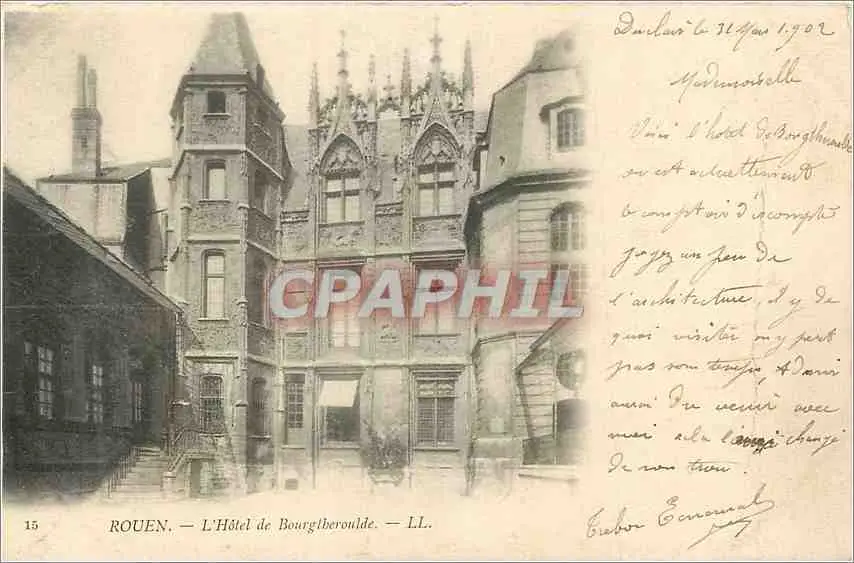 Duclair le 31 Mai 1902
Mademoiselle
Voici l'hotel de Bourgtheroulde
ou est actuellement
le comptoir d'escompte
Jojez un peu de
l'architecture, il y a de
quoi visiter on y perd
pas son temps,
aurai du venir avec
moi a la changé
de son trou.
CPARAMA
15 ROUEN. — L'Hôtel de Bourgtheroulde. — LL.